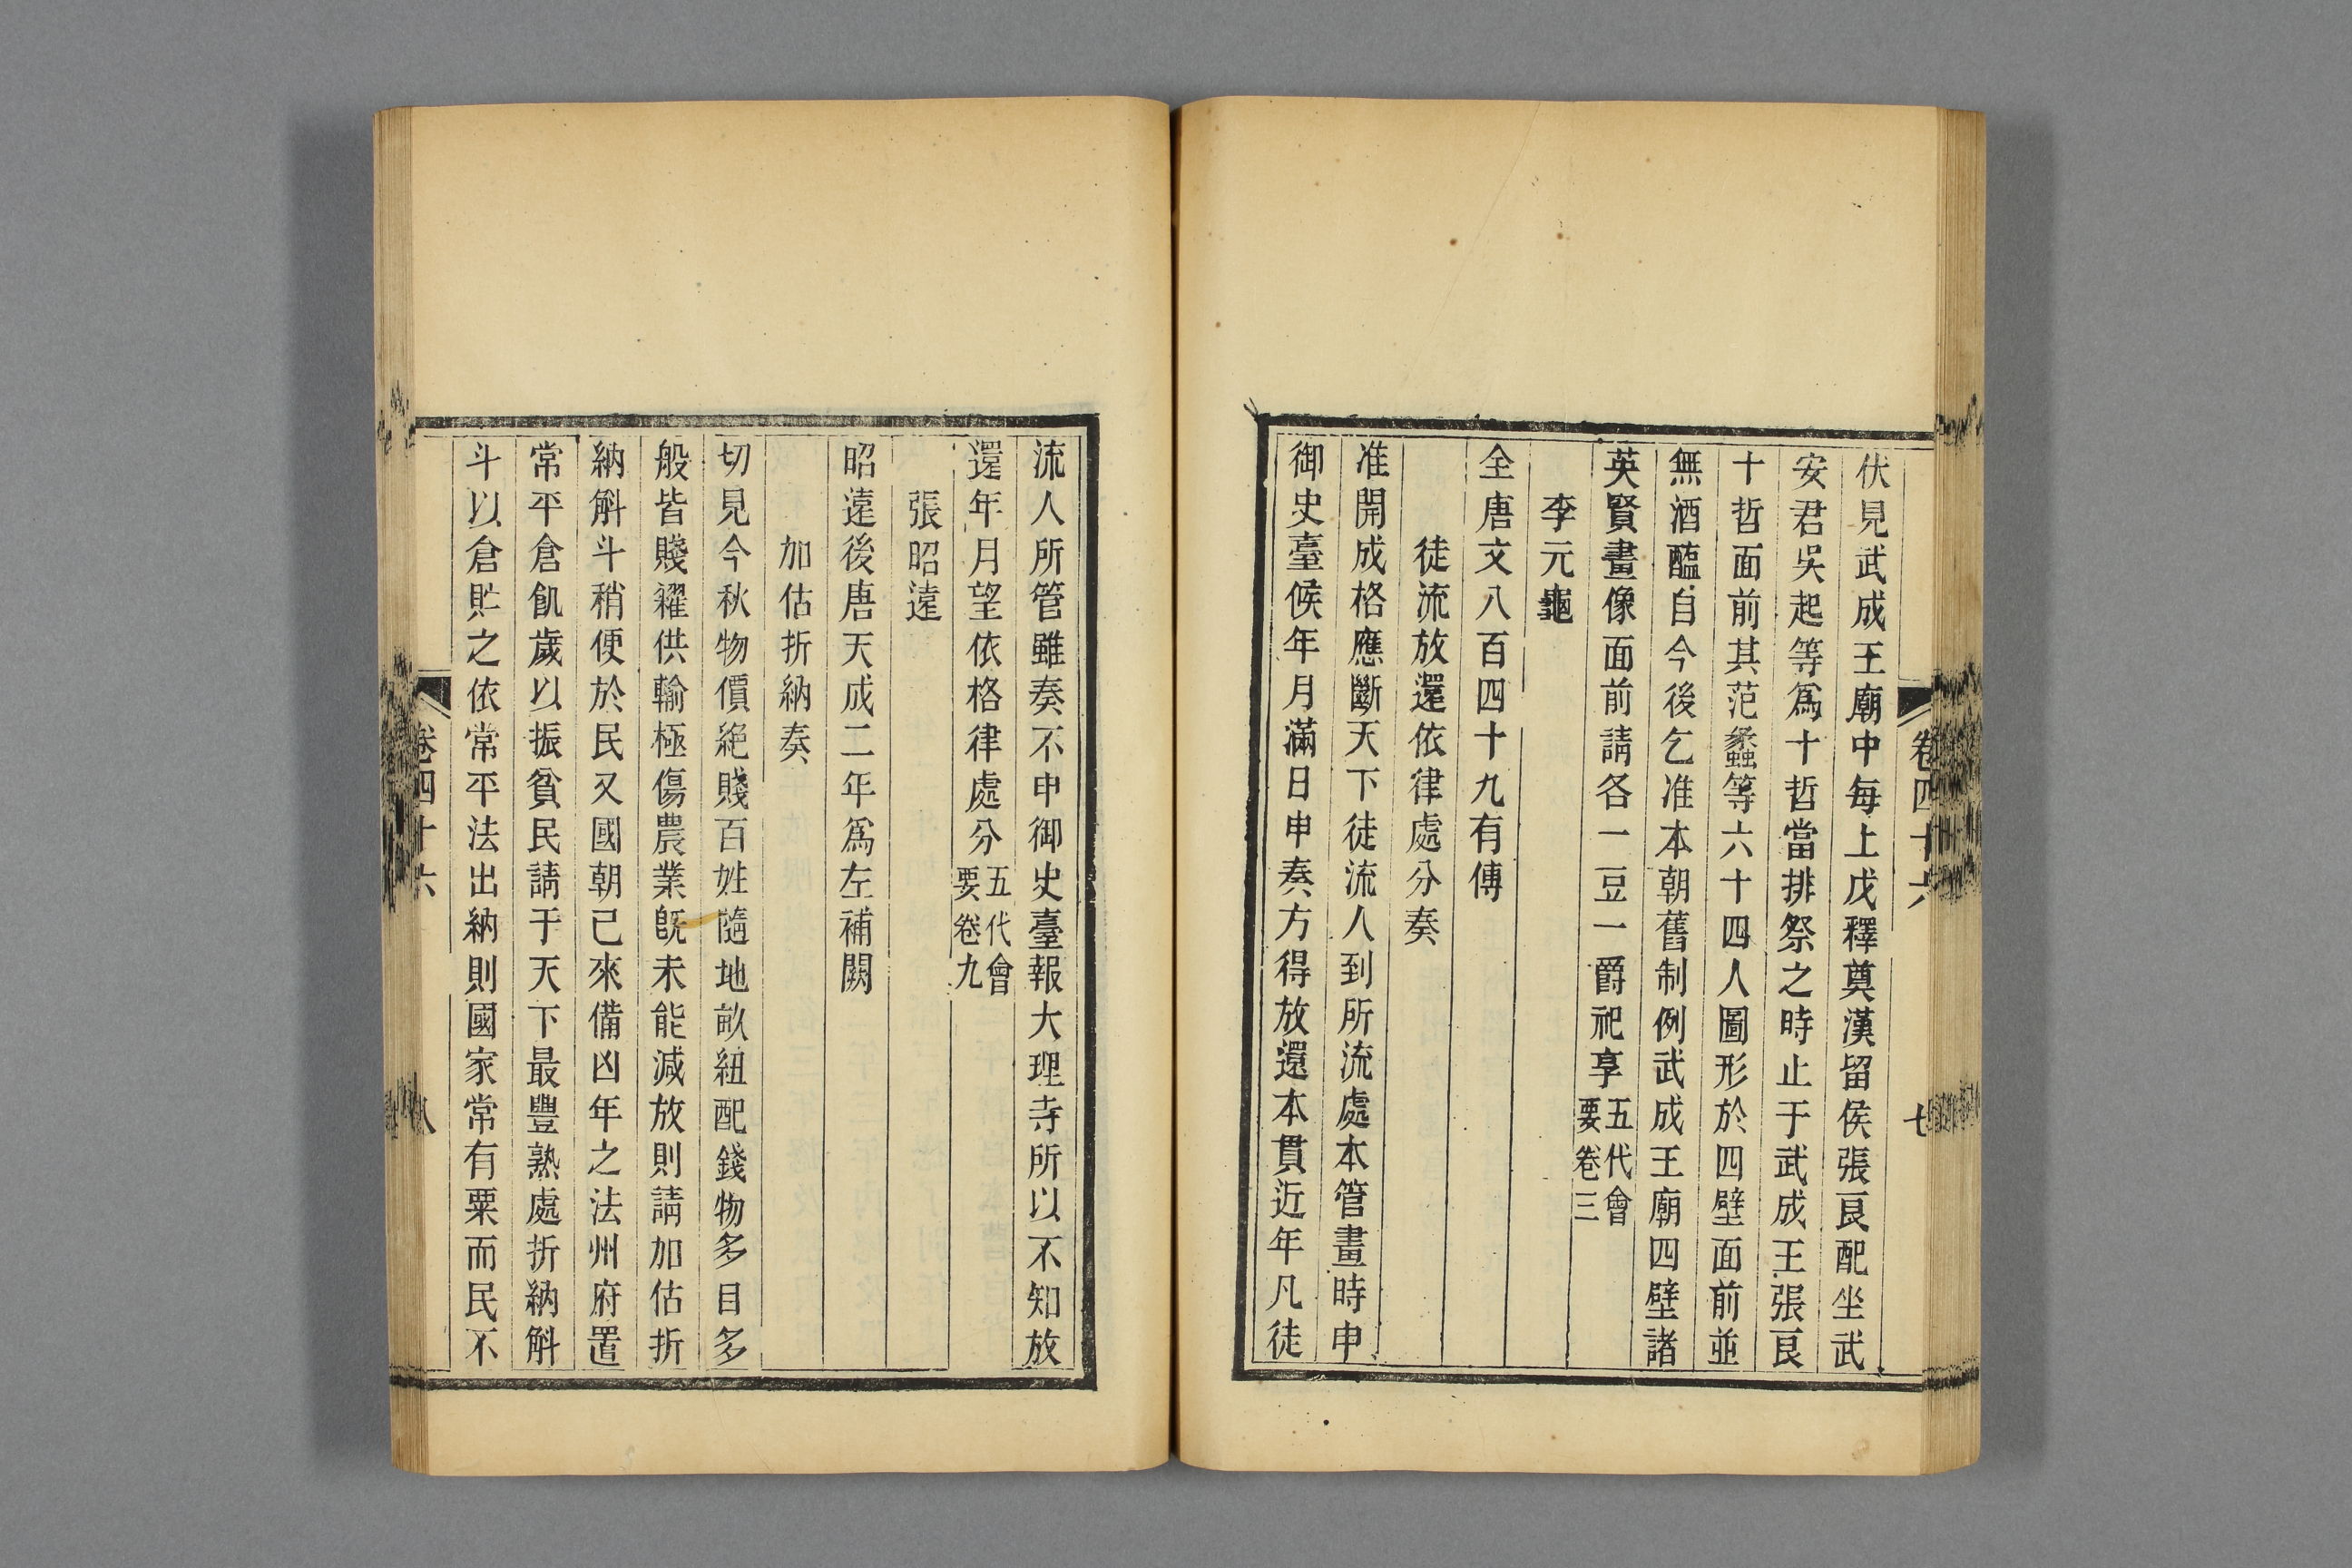 卷四十六
七
伏見武成王廟中每上戊釋奠漢留侯張良配坐武
安君吳起等爲十哲當排祭之時止于武成王張良
十哲面前其范蠡等六十四人圖形於四壁面前並
無酒醢自今後乞准本朝舊制例武成王廟四壁諸
英賢畫像面前請各一豆一爵祀享五代會要卷三
李元龜
全唐文八百四十九有傳
徒流放還依律處分奏
准開成格應斷天下徒流人到所流處本管畫時申
御史臺候年月滿日申奏方得放還本貫近年凡徒
流人所管雖奏不申御史臺報大理寺所以不知放
還年月望依格律處分五代會要卷九
張昭遠
昭遠後唐天成二年爲左補闕
加估折納奏
切見今秋物價絕賤百姓隨地畝紐配錢物多目多
般皆賤糴供輸極傷農業旣未能減放則請加估折
納斛斗稍便於民又國朝已來備凶年之法州府置
常平倉飢歲以振貧民請于天下最豐熟處折納斛
斗以倉貯之依常平法出納則國家常有粟而民不
卷四十六
八